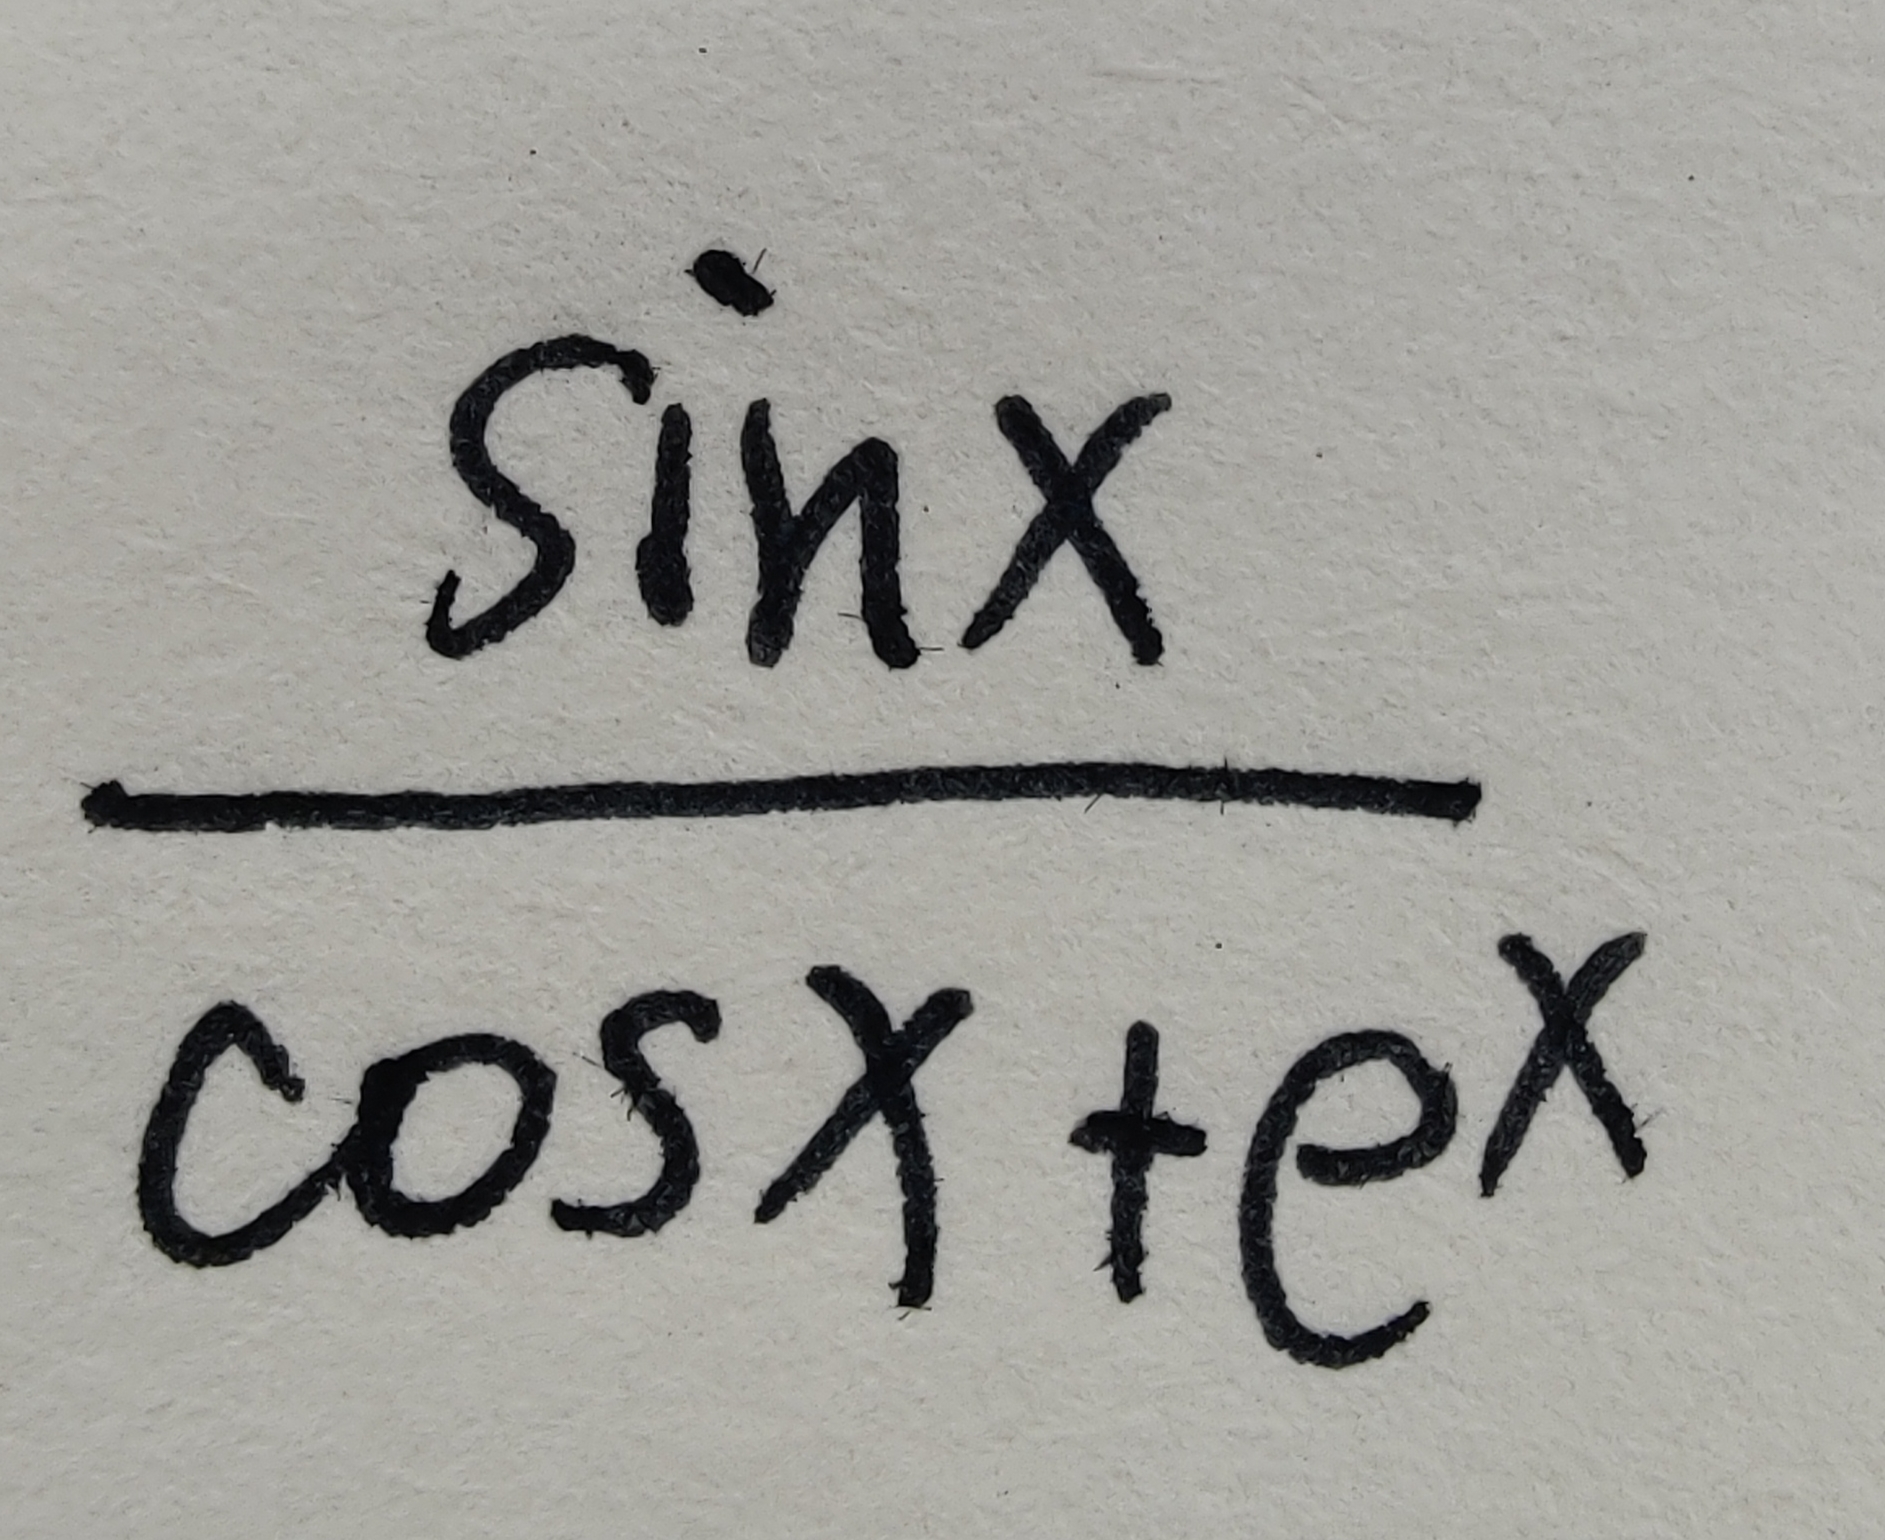 sinx
cosx+e^x